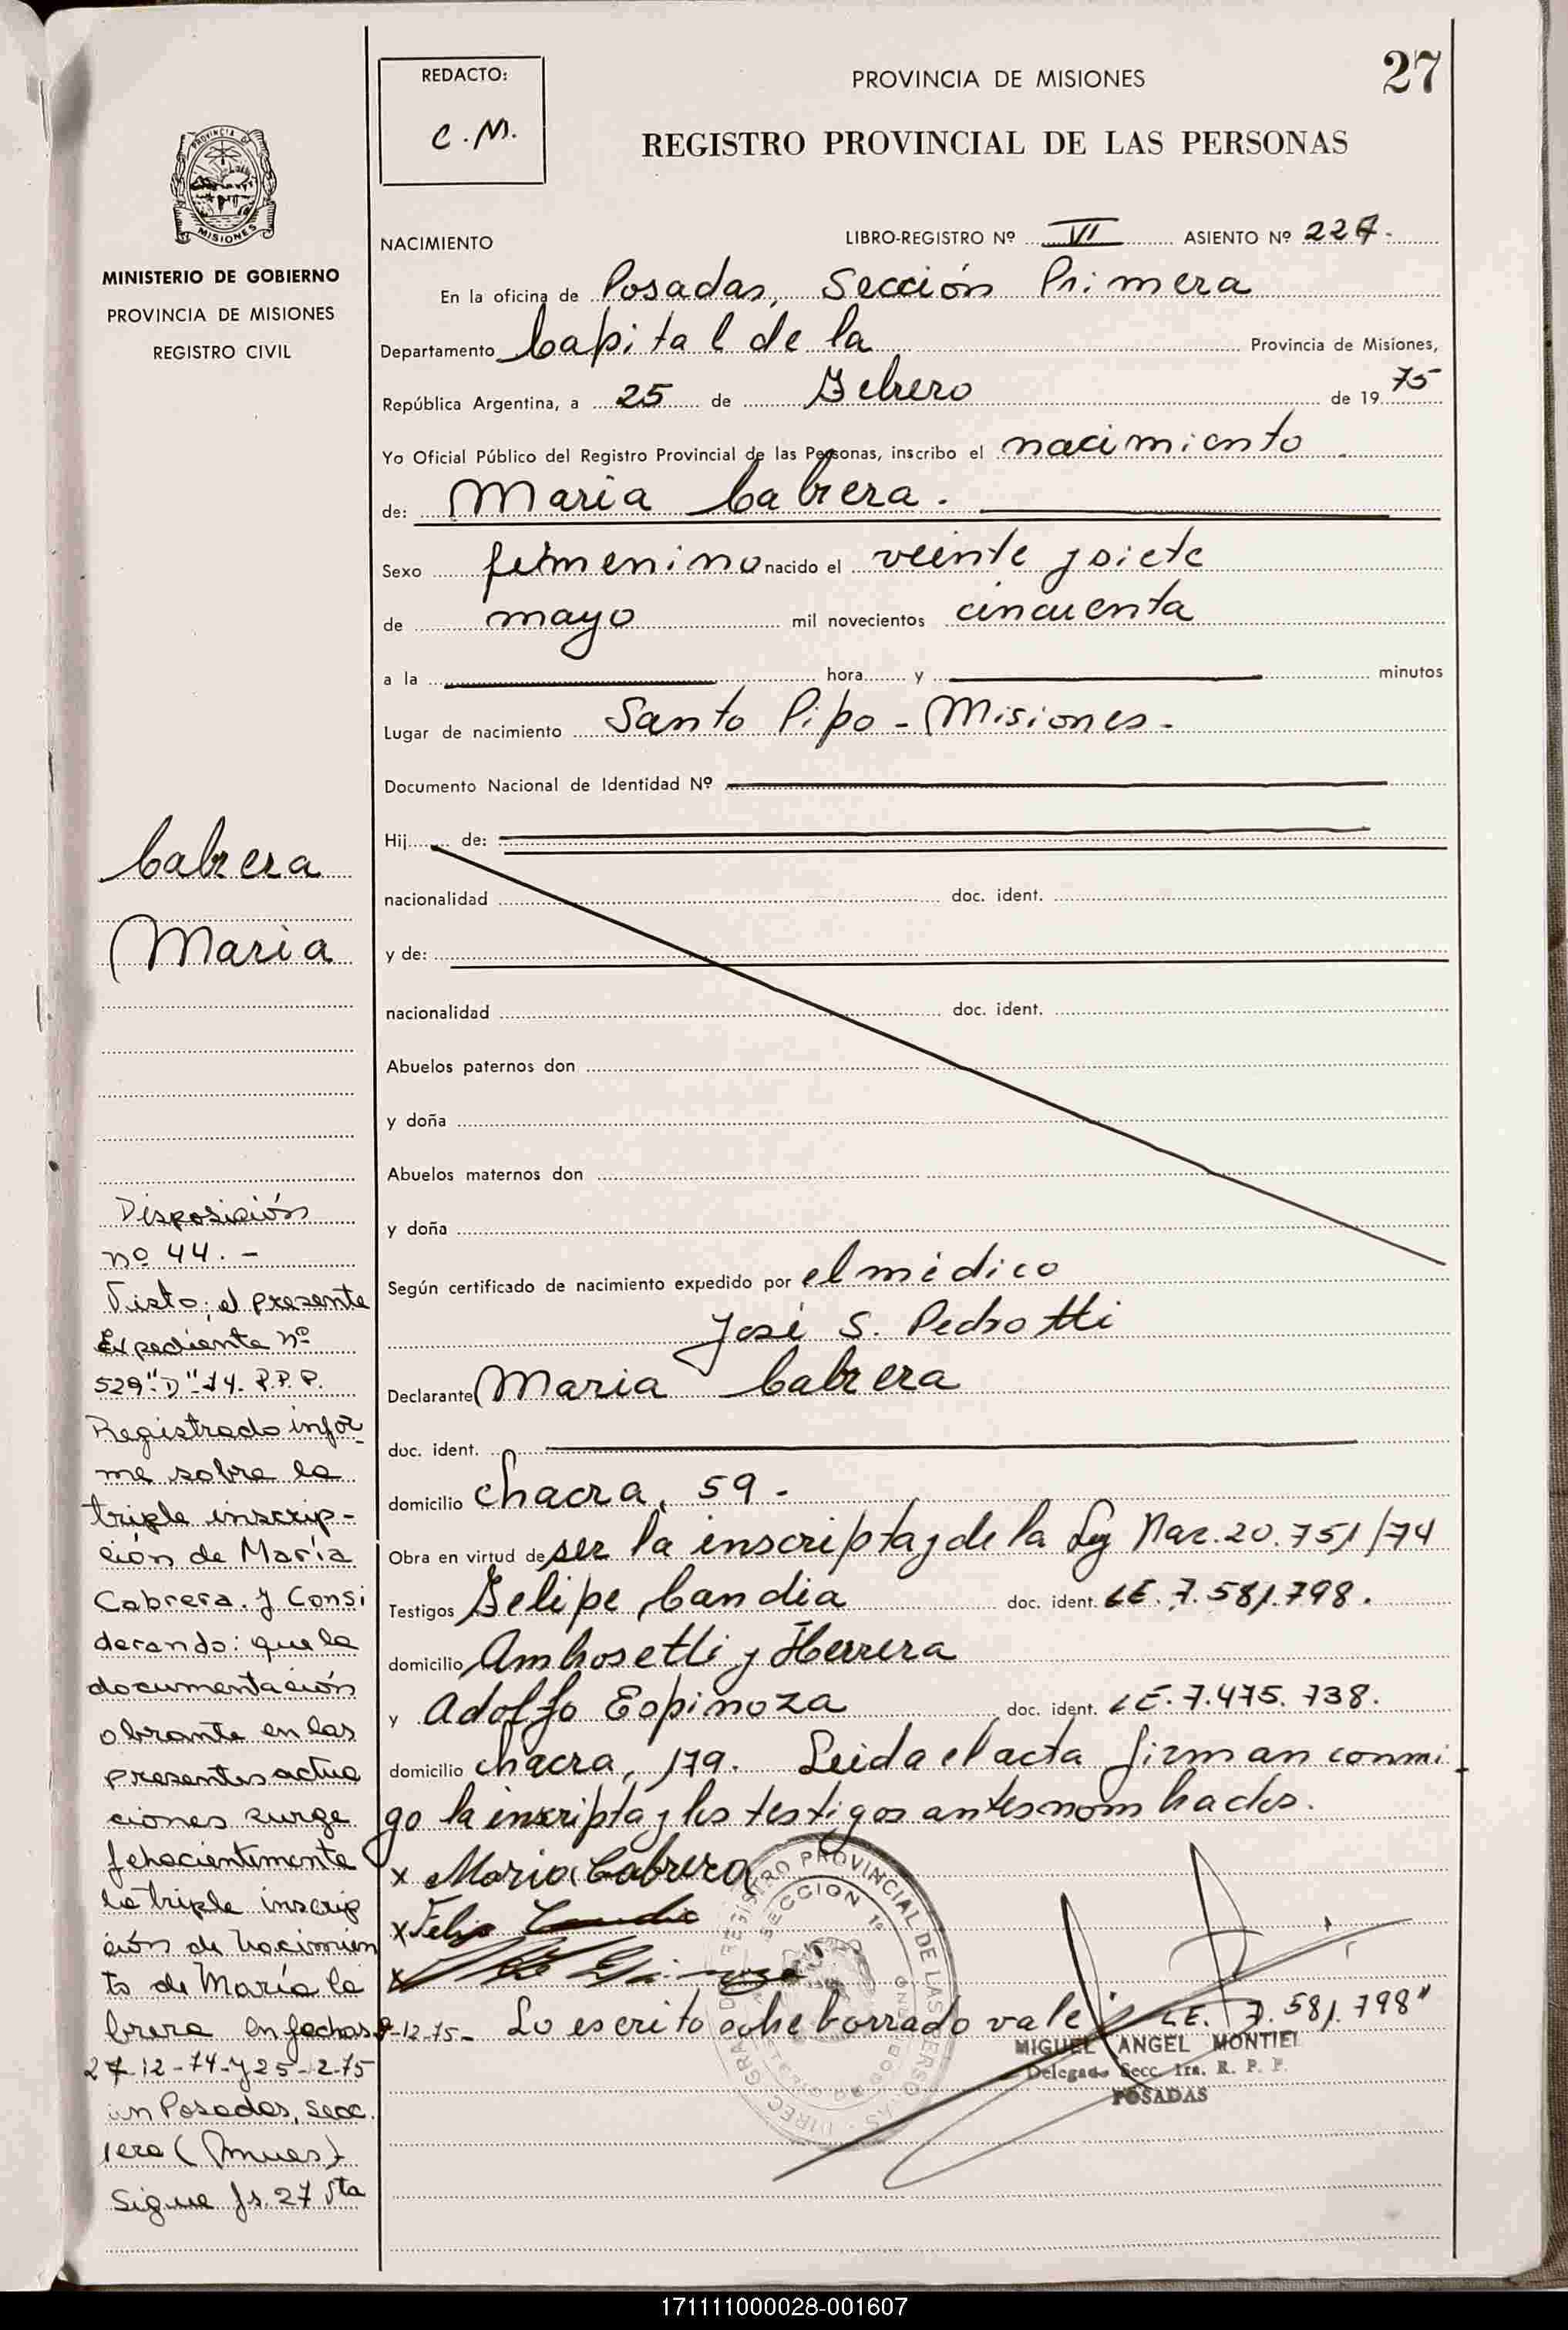 27
REDACTO:
C.M.
PROVINCIA DE MISIONES
REGISTRO PROVINCIAL DE LAS PERSONAS
PROVINCIA DE
MISIONES
MINISTERIO DE GOBIERNO
PROVINCIA DE MISIONES
REGISTRO CIVIL
NACIMIENTO
LIBRO-REGISTRO Nº VI ASIENTO Nº 227.
En la oficina de Posadas, Sección Primera
Departamento Capital de la Provincia de Misiones,
República Argentina, a 25 de Febrero de 1975
Yo Oficial Público del Registro Provincial de las Personas, inscribo el nacimiento
de: Maria Cabrera.
Sexo femenino nacido el veinte y siete
de mayo mil novecientos cincuenta
a la hora y minutos
Lugar de nacimiento Santo Pipo - Misiones -
Documento Nacional de Identidad Nº
Hij de:
nacionalidad doc. ident.
y de:
nacionalidad doc. ident.
Abuelos paternos don
y doña
Abuelos maternos don
y doña
Según certificado de nacimiento expedido por el médico
José S. Pedrotti
Declarante Maria Cabrera
doc. ident.
domicilio chacra, 59 -
Obra en virtud de ser la inscripta y de la Ley Nac. 20.751/74
Testigos Felipe Candia doc. ident. LE. 7.581.798.
domicilio Ambrosetti y Herrera
y Adolfo Espinoza doc. ident. LE. 7.475.738.
domicilio chacra, 179. Leida el acta firman conmi-
go la inscripta y los testigos antes nombrados.
x Maria Cabrera
x Felip Candia
x
Lo escrito sobre borrado vale LE. 7.581.798"
MIGUEL ANGEL MONTIEL
Delegado Secc. 1ra. R. P. P.
POSADAS
REGISTRO PROVINCIAL DE LAS PERSONAS
SECCION 1ª
Cabrera
Maria
Disposición
nº 44. -
Visto: el presente
Expediente nº
529"D"-74. R.P.P.
Registrado infor-
me sobre la
triple inscrip-
ción de María
Cabrera. y Consi
derando: que la
documentación
obrante en las
presentes actua
ciones surge
fehacientemente
la triple inscrip
ción de nacimien
to de María Ca
brera en fechas 9-12-75-
27-12-74-y 25-2-75
en Posadas, Secc.
1era (Mnes)
Sigue fs. 27 Vta
171111000028-001607